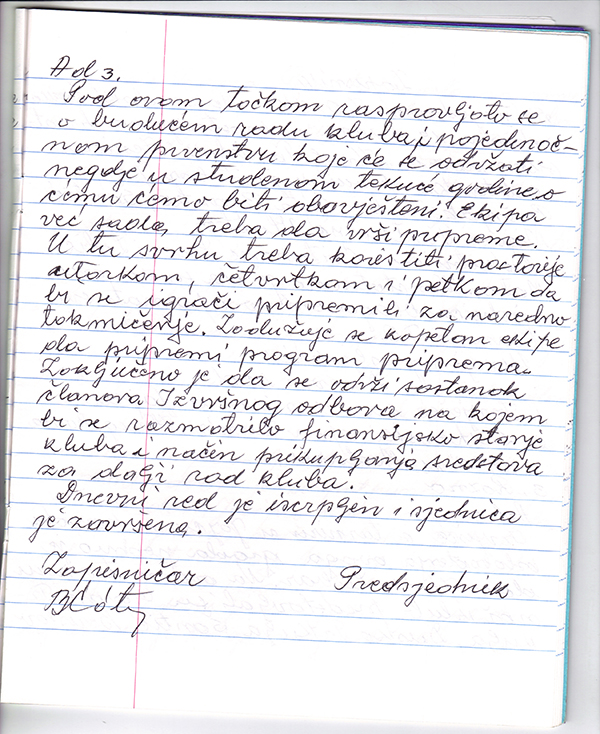 Ad 3.
Pod ovom točkom raspravljalo se
o budućem radu kluba i pojedinoč-
nom prvenstvu koje će se održati
negdje u studenom tekuće godine, o
čemu ćemo biti obavješteni. Ekipa
već sada treba da vrši pripreme.
U tu svrhu treba koristiti prostorije
utorkom, četvrtkom i petkom da
bi se igrači pripremili za naredno
takmičenje. Zadužuje se kapetan ekipe
da pripremi program priprema.
Zaključeno je da se održi sastanak
članova Izvršnog odbora na kojem
bi se razmotrilo finansijsko stanje
kluba i način prikupljanja sredstava
za dalji rad kluba.
Dnevni red je iscrpljen i sjednica
je završena.
Zapisničar Predsjednik